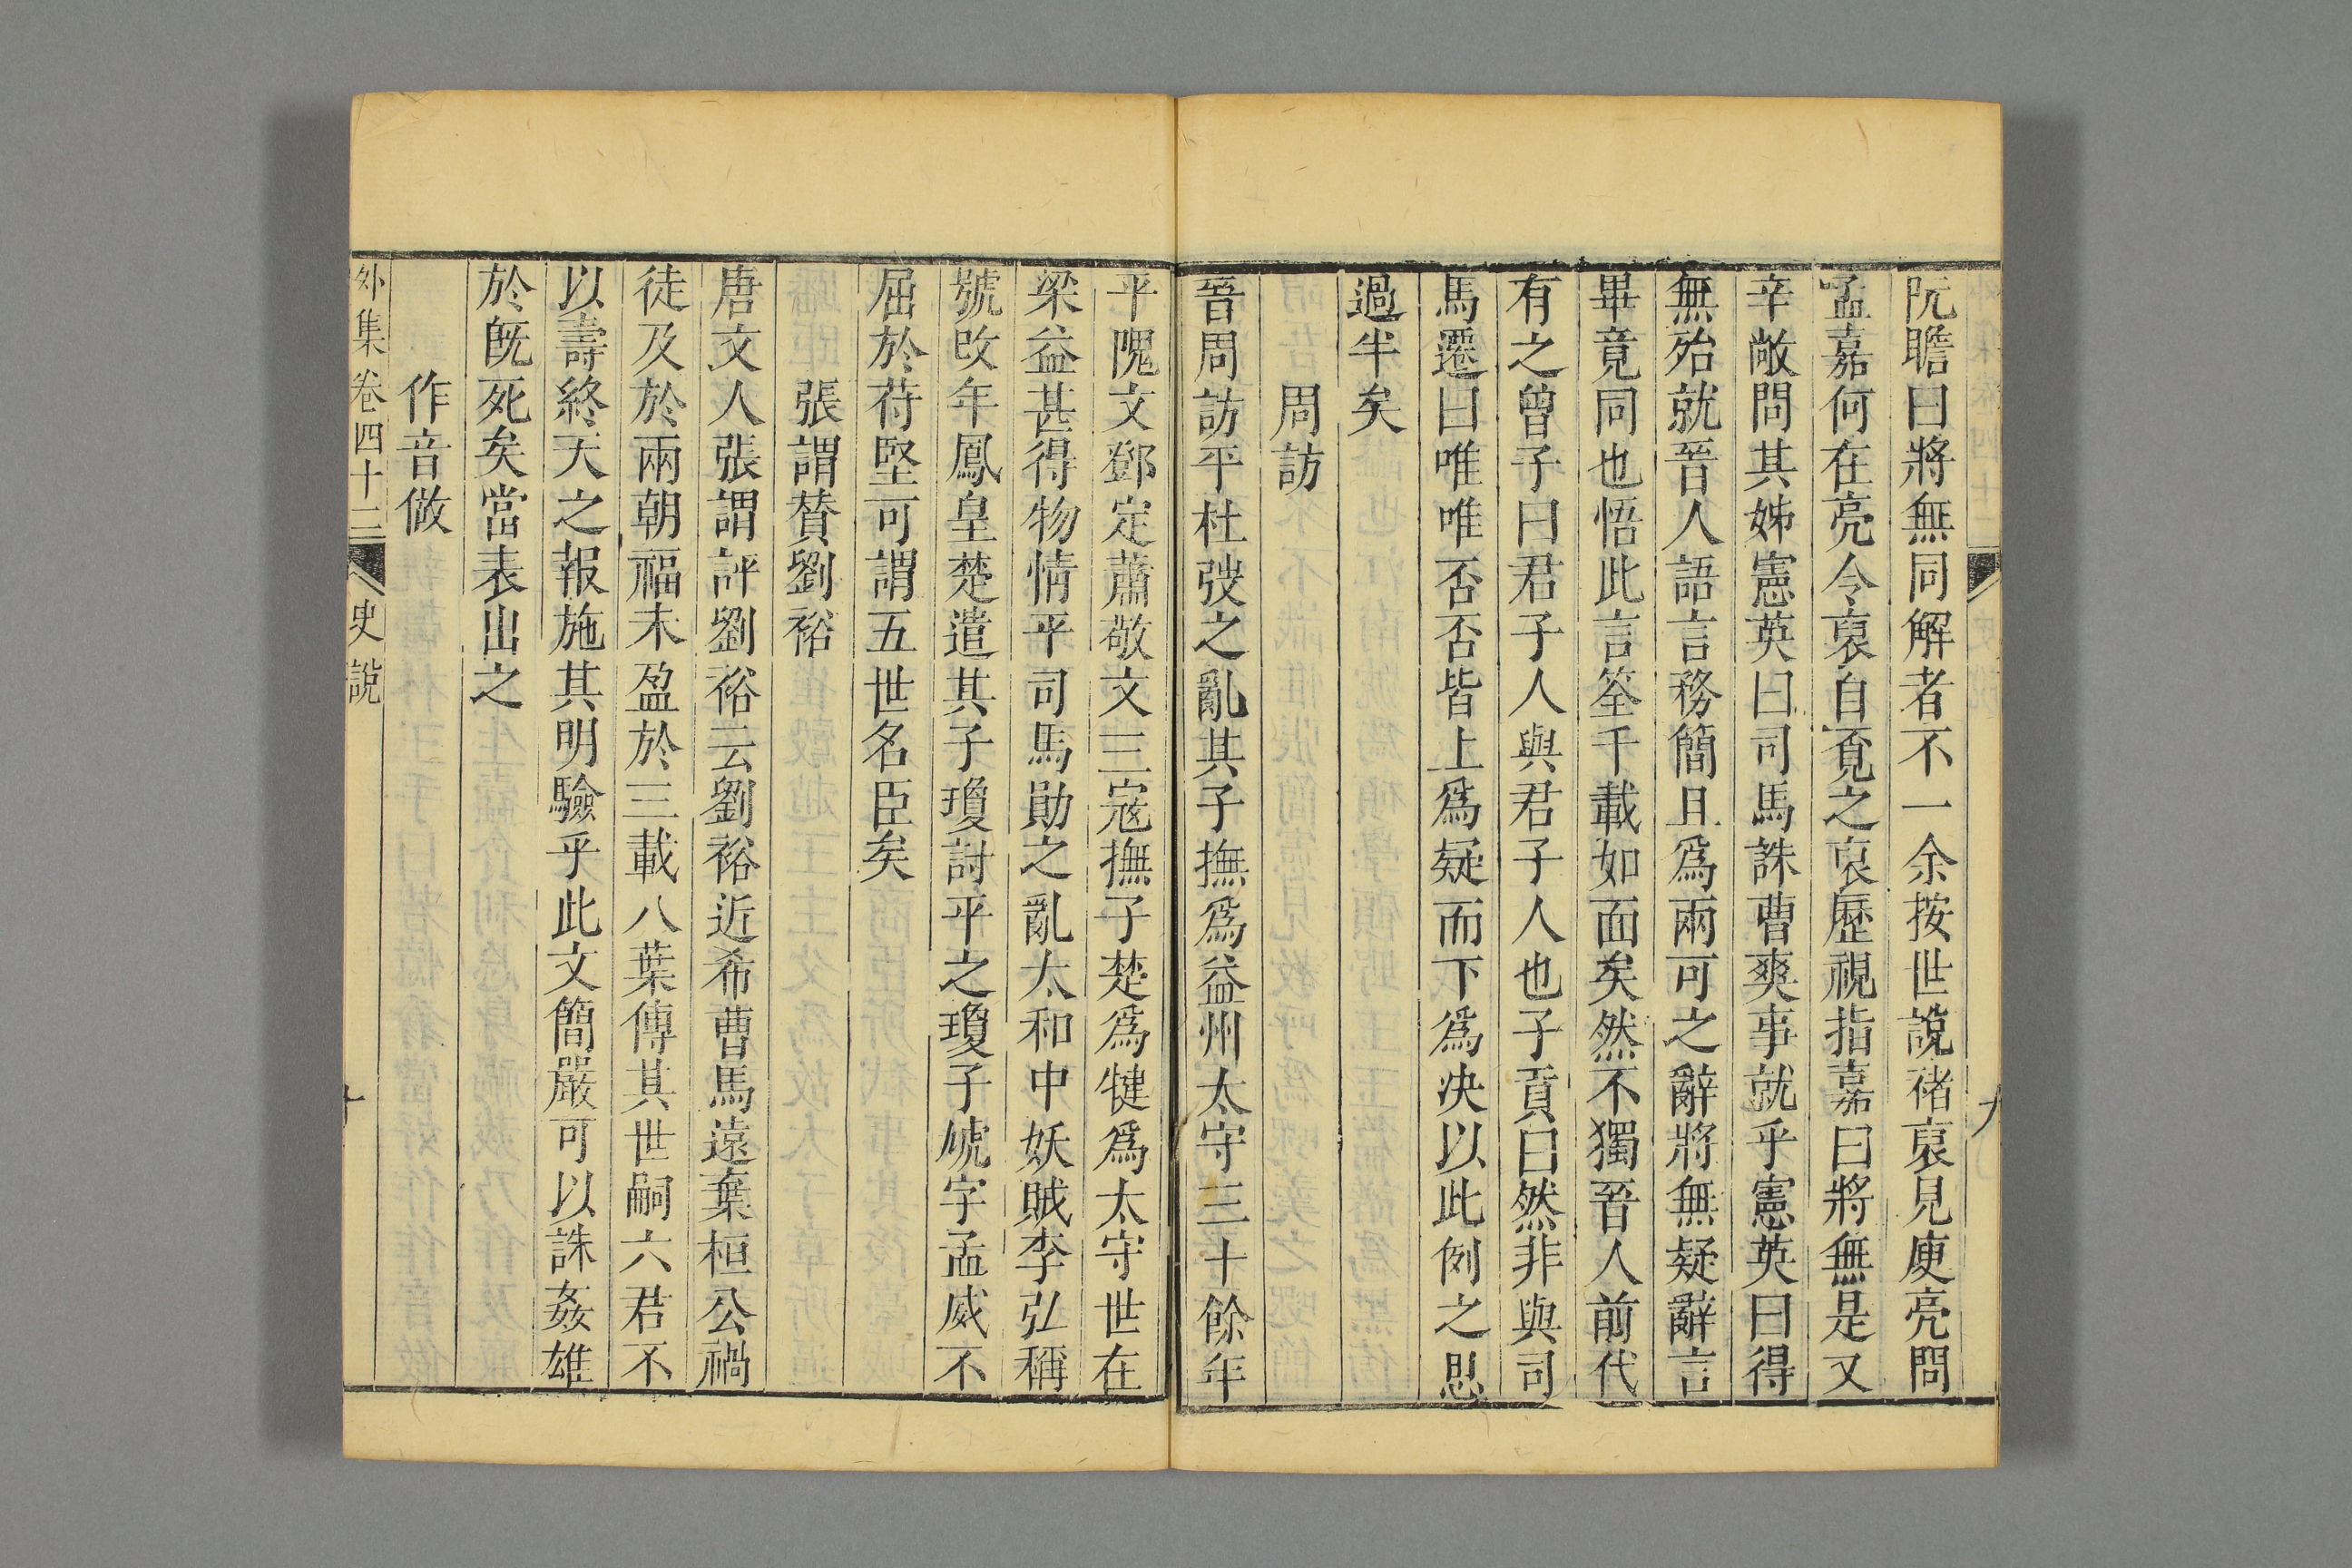 阮瞻曰將無同解者不一余按世說褚裒見庾亮問
孟嘉何在亮令裒自覓之裒歷視指嘉曰將無是又
辛敞問其姊憲英曰司馬誅曹爽事就乎憲英曰得
無殆就晉人語言務簡且爲兩可之辭將無疑辭言
畢竟同也悟此言筌千載如面矣然不獨晉人前代
有之曾子曰君子人與君子人也子貢曰然非與司
馬遷曰唯唯否否皆上爲疑而下爲决以此例之思
過半矣
周訪
晉周訪平杜弢之亂其子撫爲益州太守三十餘年
平隗文鄧定蕭敬文三寇撫子楚爲犍爲太守世在
梁益甚得物情平司馬勛之亂太和中妖賊李弘稱
號改年鳳皇楚遣其子瓊討平之瓊子虓字孟威不
屈於苻堅可謂五世名臣矣
張謂賛劉裕
唐文人張謂評劉裕云劉裕近希曹馬遠棄桓公禍
徒及於兩朝福未盈於三載八葉傳其世嗣六君不
以壽終天之報施其明驗乎此文簡嚴可以誅姦雄
於旣死矣當表出之
作音做
外集卷四十三 史說 十